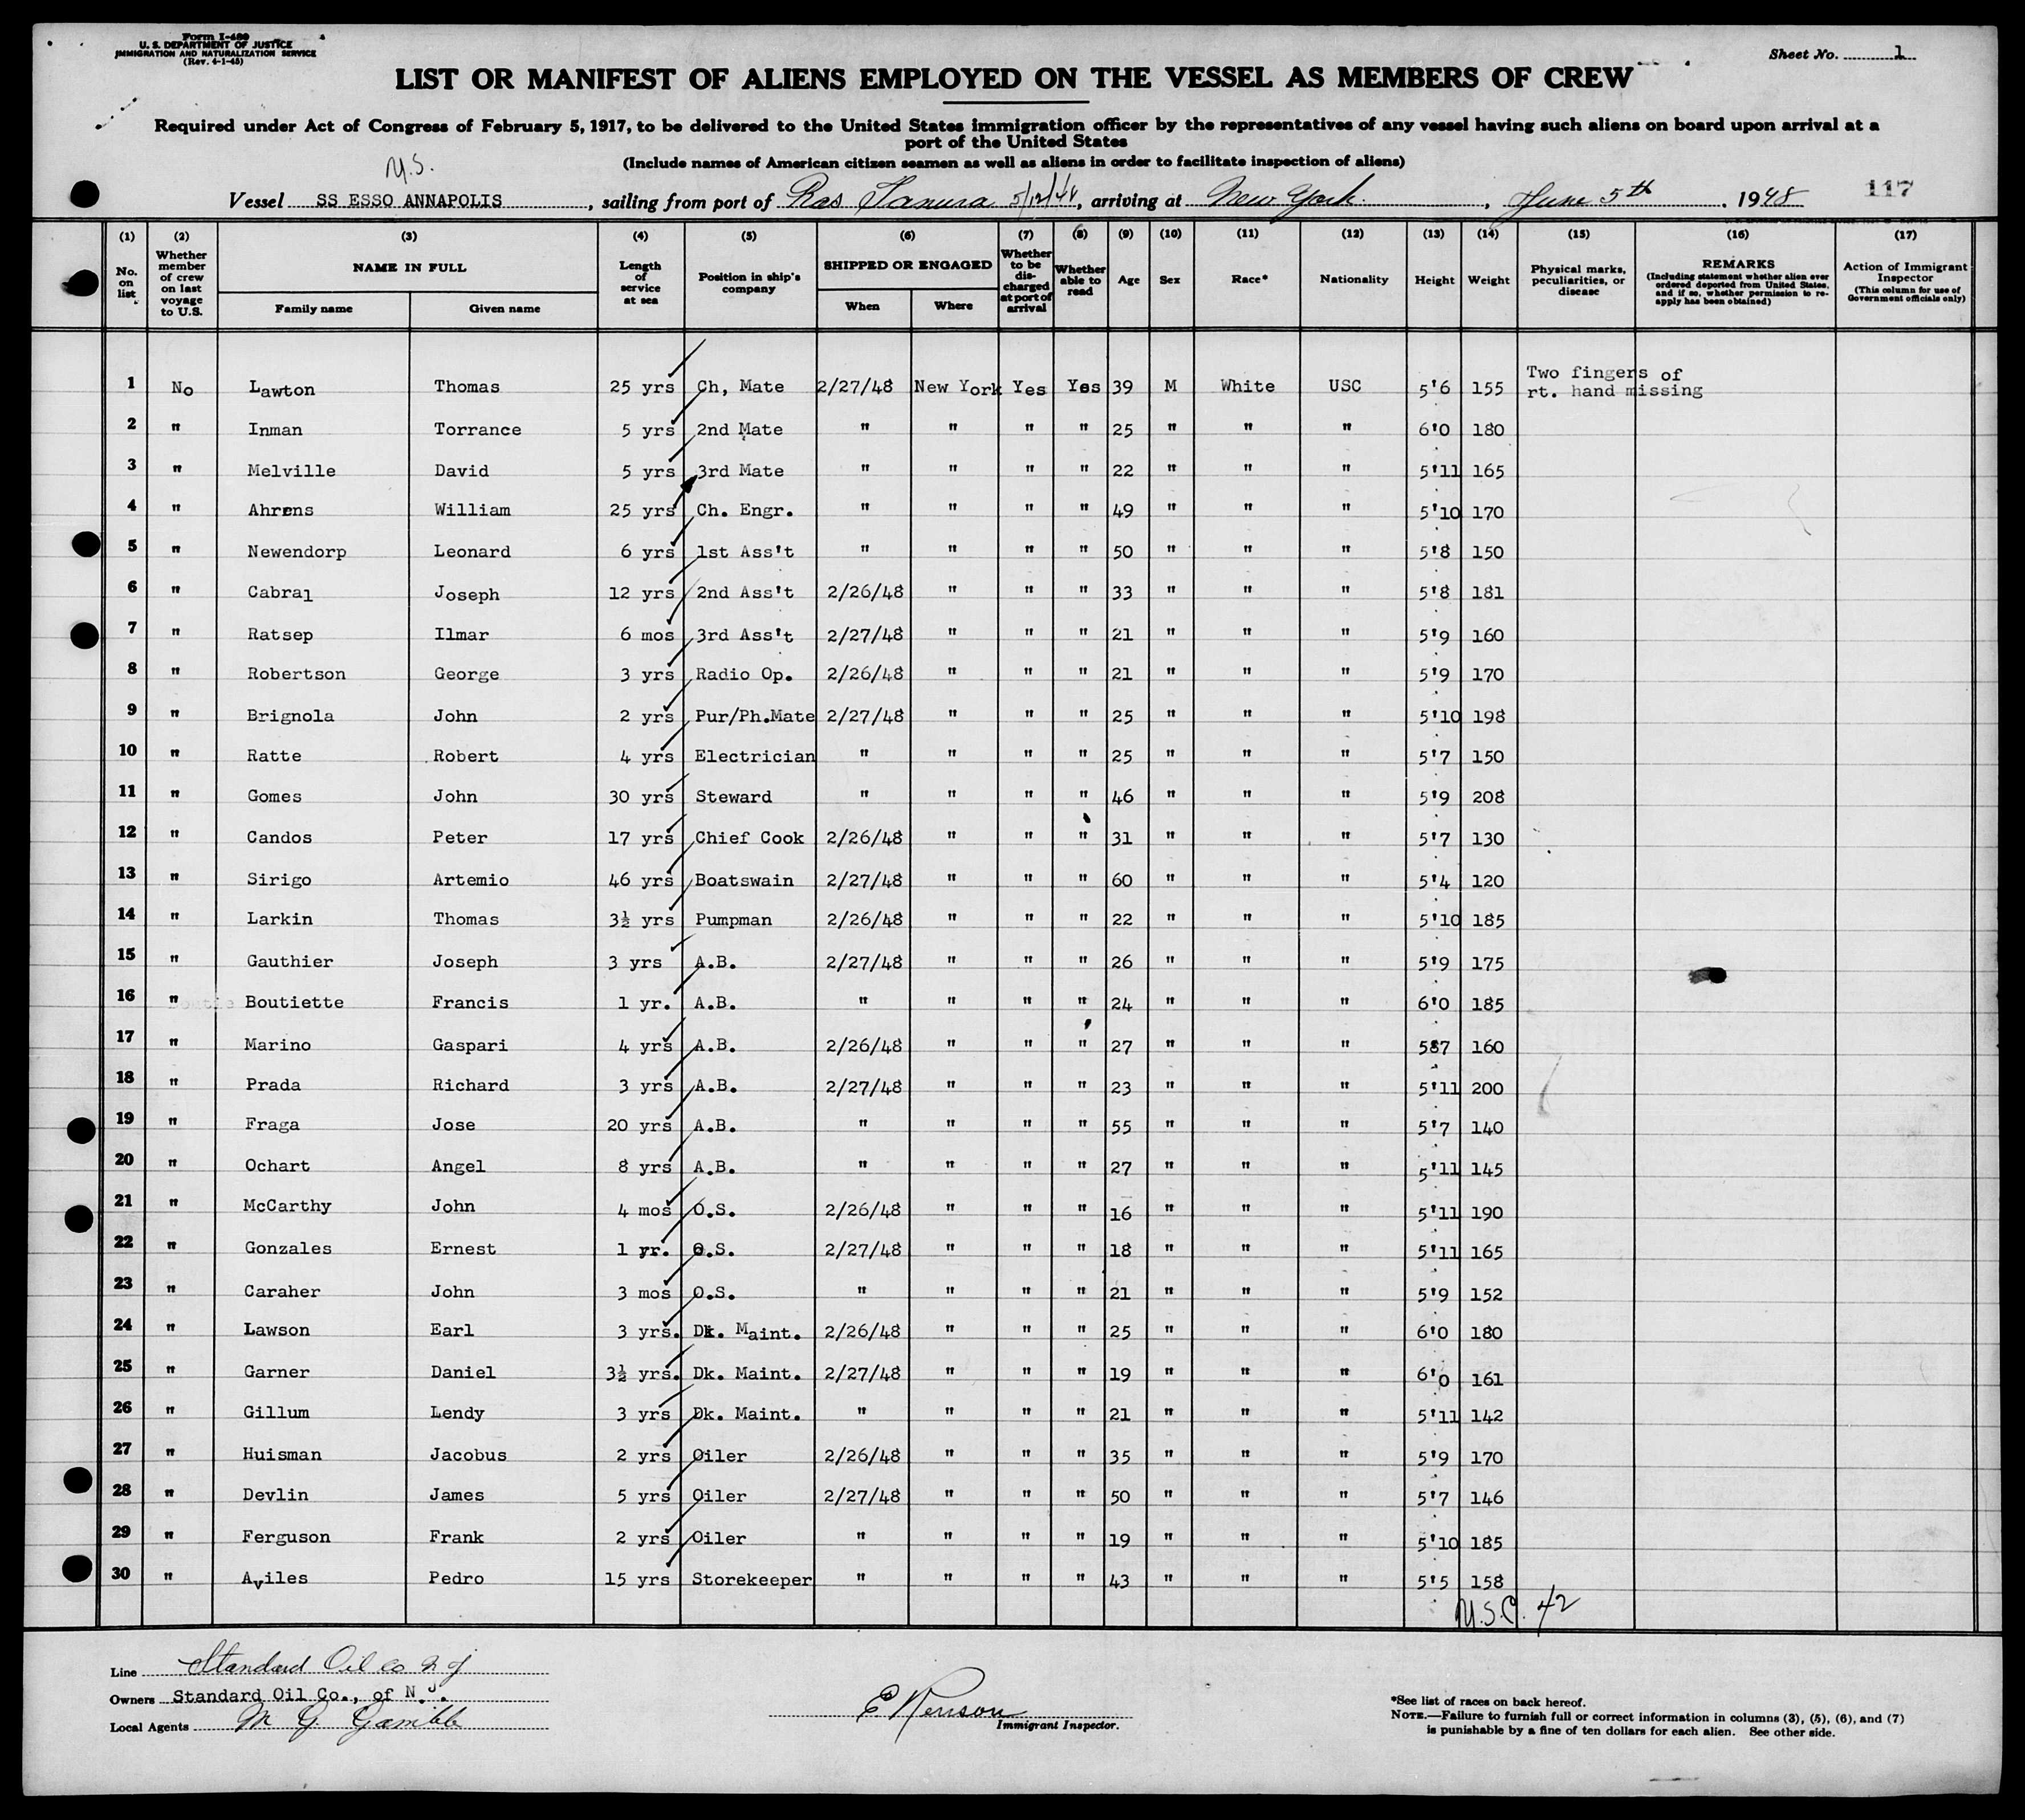 Form I-480
U. S. DEPARTMENT OF JUSTICE
IMMIGRATION AND NATURALIZATION SERVICE
(Rev. 4-1-45)
Sheet No. 1
LIST OR MANIFEST OF ALIENS EMPLOYED ON THE VESSEL AS MEMBERS OF CREW
Required under Act of Congress of February 5, 1917, to be delivered to the United States immigration officer by the representatives of any vessel having such aliens on board upon arrival at a
port of the United States
(Include names of American citizen seamen as well as aliens in order to facilitate inspection of aliens)
U.S.
Vessel SS ESSO ANNAPOLIS, sailing from port of Ras Tanura 5/12/48, arriving at New York., June 5th, 1948 117
(1) (2) (3) (4) (5) (6) (7) (8) (9) (10) (11) (12) (13) (14) (15) (16) (17)
No. on list Whether member of crew on last voyage to U.S. NAME IN FULL Family name Given name Length of service at sea Position in ship's company SHIPPED OR ENGAGED When Where Whether to be discharged at port of arrival Whether able to read Age Sex Race* Nationality Height Weight Physical marks, peculiarities, or disease REMARKS (Including statement whether alien ever ordered deported from United States, and if so, whether permission to reapply has been obtained) Action of Immigrant Inspector (This column for use of Government officials only)
1 No Lawton Thomas 25 yrs Ch, Mate 2/27/48 New York Yes Yes 39 M White USC 5'6 155 Two fingers of rt. hand missing
2 " Inman Torrance 5 yrs 2nd Mate " " " " 25 " " " 6'0 180
3 " Melville David 5 yrs 3rd Mate " " " " 22 " " " 5'11 165
4 " Ahrens William 25 yrs Ch. Engr. " " " " 49 " " " 5'10 170
5 " Newendorp Leonard 6 yrs 1st Ass't " " " " 50 " " " 5'8 150
6 " Cabral Joseph 12 yrs 2nd Ass't 2/26/48 " " " 33 " " " 5'8 181
7 " Ratsep Ilmar 6 mos 3rd Ass't 2/27/48 " " " 21 " " " 5'9 160
8 " Robertson George 3 yrs Radio Op. 2/26/48 " " " 21 " " " 5'9 170
9 " Brignola John 2 yrs Pur/Ph.Mate 2/27/48 " " " 25 " " " 5'10 198
10 " Ratte Robert 4 yrs Electrician " " " " 25 " " " 5'7 150
11 " Gomes John 30 yrs Steward " " " " 46 " " " 5'9 208
12 " Candos Peter 17 yrs Chief Cook 2/26/48 " " " 31 " " " 5'7 130
13 " Sirigo Artemio 46 yrs Boatswain 2/27/48 " " " 60 " " " 5'4 120
14 " Larkin Thomas 3½ yrs Pumpman 2/26/48 " " " 22 " " " 5'10 185
15 " Gauthier Joseph 3 yrs A.B. 2/27/48 " " " 26 " " " 5'9 175
16 " Boutiette Francis 1 yr. A.B. " " " " 24 " " " 6'0 185
17 " Marino Gaspari 4 yrs A.B. 2/26/48 " " " 27 " " " 587 160
18 " Prada Richard 3 yrs A.B. 2/27/48 " " " 23 " " " 5'11 200
19 " Fraga Jose 20 yrs A.B. " " " " 55 " " " 5'7 140
20 " Ochart Angel 8 yrs A.B. " " " " 27 " " " 5'11 145
21 " McCarthy John 4 mos O.S. 2/26/48 " " " 16 " " " 5'11 190
22 " Gonzales Ernest 1 yr. O.S. 2/27/48 " " " 18 " " " 5'11 165
23 " Caraher John 3 mos O.S. " " " " 21 " " " 5'9 152
24 " Lawson Earl 3 yrs. Dk. Maint. 2/26/48 " " " 25 " " " 6'0 180
25 " Garner Daniel 3½ yrs. Dk. Maint. 2/27/48 " " " 19 " " " 6'0 161
26 " Gillum Lendy 3 yrs Dk. Maint. " " " " 21 " " " 5'11 142
27 " Huisman Jacobus 2 yrs Oiler 2/26/48 " " " 35 " " " 5'9 170
28 " Devlin James 5 yrs Oiler 2/27/48 " " " 50 " " " 5'7 146
29 " Ferguson Frank 2 yrs Oiler " " " " 19 " " " 5'10 185
30 " Aviles Pedro 15 yrs Storekeeper " " " " 43 " " " 5'5 158
U.S.C. 42
Line Standard Oil Co N J
Owners Standard Oil Co., of N.J.
Local Agents M G Gamble
Immigrant Inspector.
*See list of races on back hereof.
NOTE.—Failure to furnish full or correct information in columns (3), (5), (6), and (7)
is punishable by a fine of ten dollars for each alien. See other side.